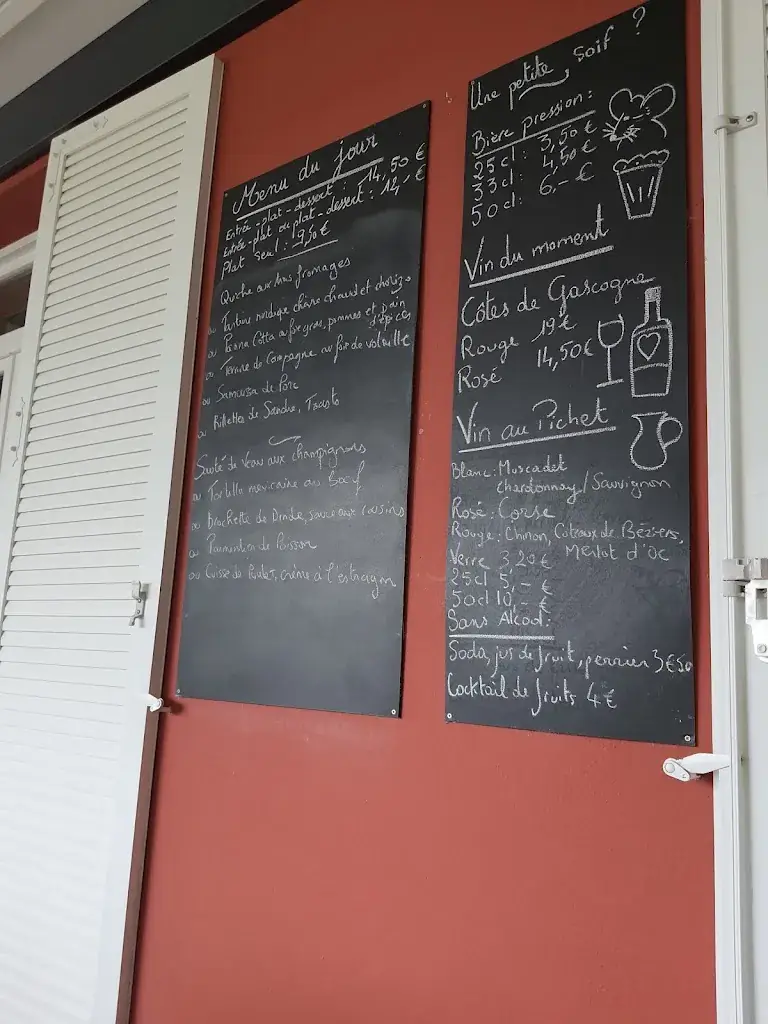 Menu du jour
Entrée - plat - dessert : 14,50 €
Entrée-plat ou plat-dessert : 12,- €
Plat seul : 9,50 €
Quiche aux trois fromages
ou Tartine nordique chèvre chaud et chorizo
ou Panna Cotta au foie gras, pommes et pain
d'épices
ou Terrine de Campagne au foie de volaille
ou Samoussa de Porc
ou Rillettes de Sandre, Toasts
Sauté de Veau aux champignons
ou Tortilla mexicaine au Boeuf
ou Brochette de Dinde, sauce aux raisins
ou Parmentier de Poisson
ou Cuisse de Poulet, crème à l'estragon
Une petite soif ?
Bière pression :
25 cl : 3,50 €
33 cl : 4,50 €
50 cl : 6,- €
Vin du moment
Côtes de Gascogne
Rouge 19 €
Rosé 14,50 €
Vin au Pichet
Blanc : Muscadet
Chardonnay / Sauvignon
Rosé : Corse
Rouge : Chinon, Coteaux de Béziers,
Merlot d'Oc
Verre 3,20 €
25cl 5,- €
50cl 10,- €
Sans Alcool :
Soda, jus de fruit, perrier 3€50
Cocktail de fruits 4 €